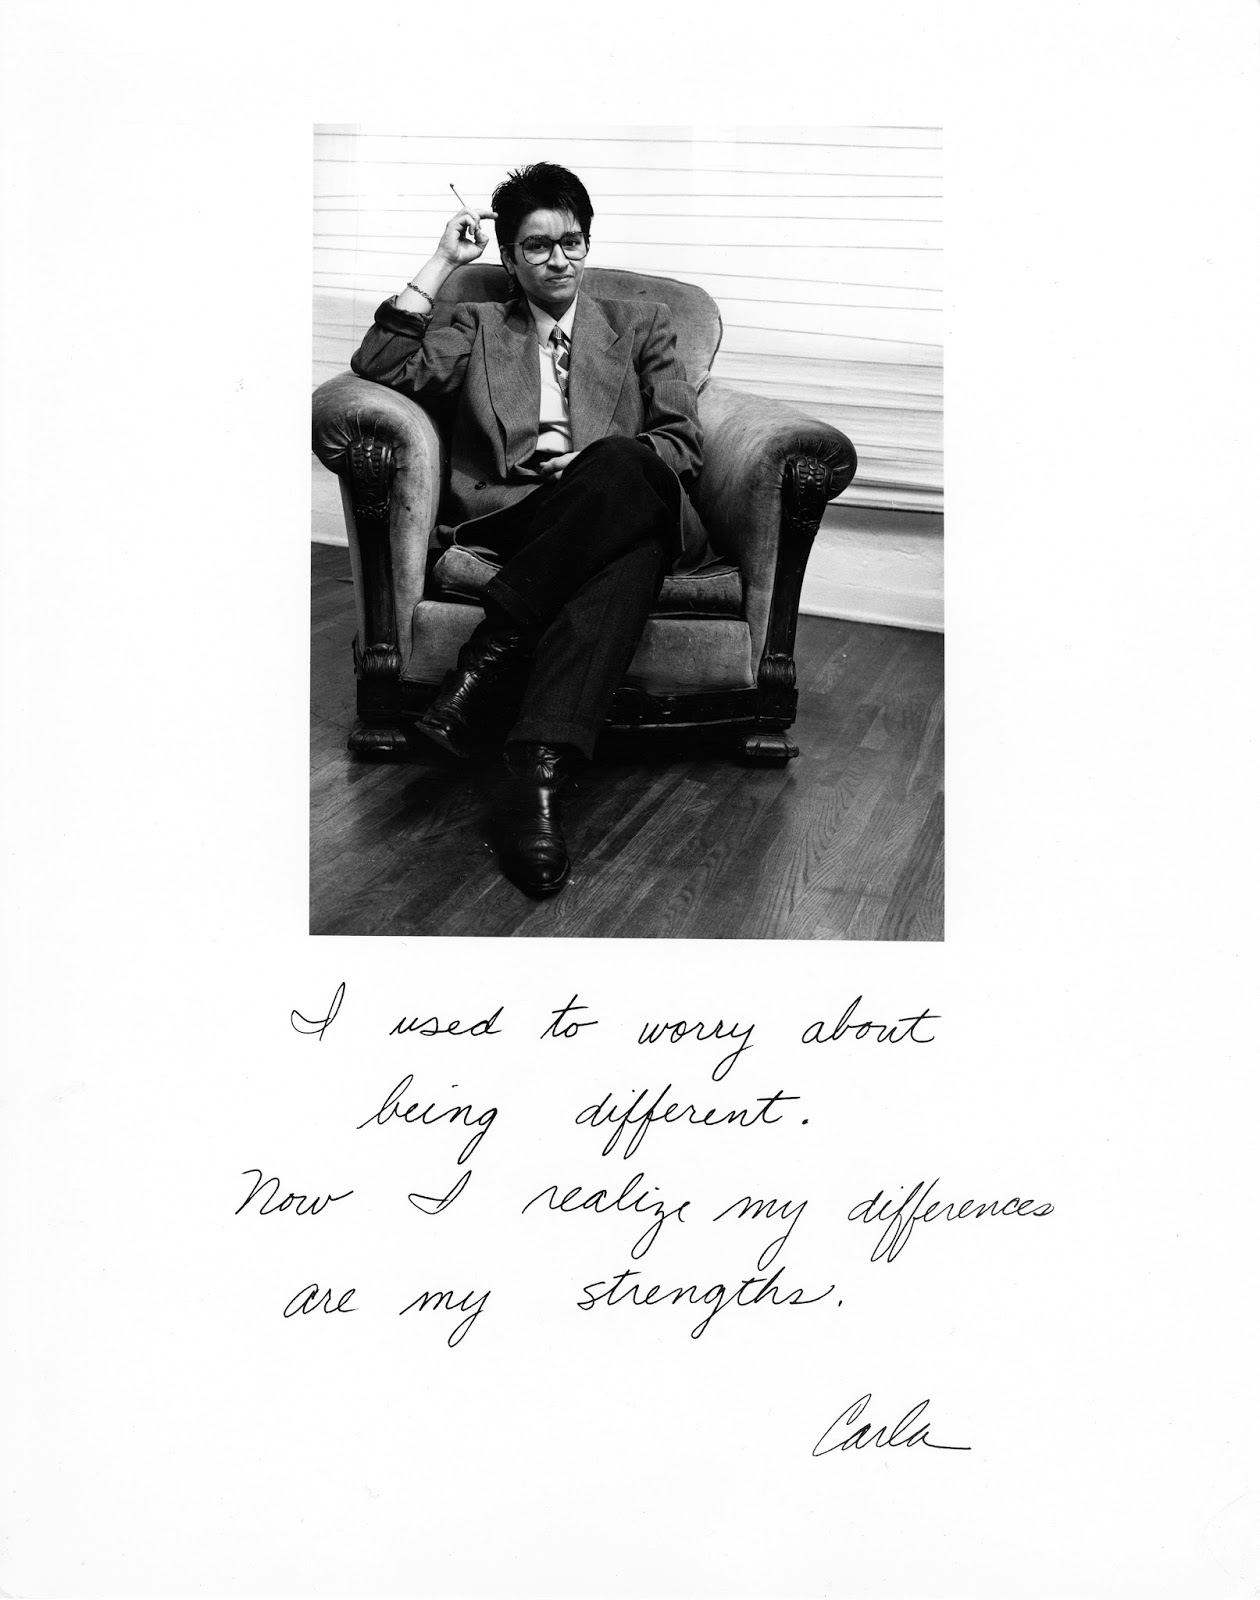 I used to worry about
being different.
Now I realize my differences
are my strengths.
Carla